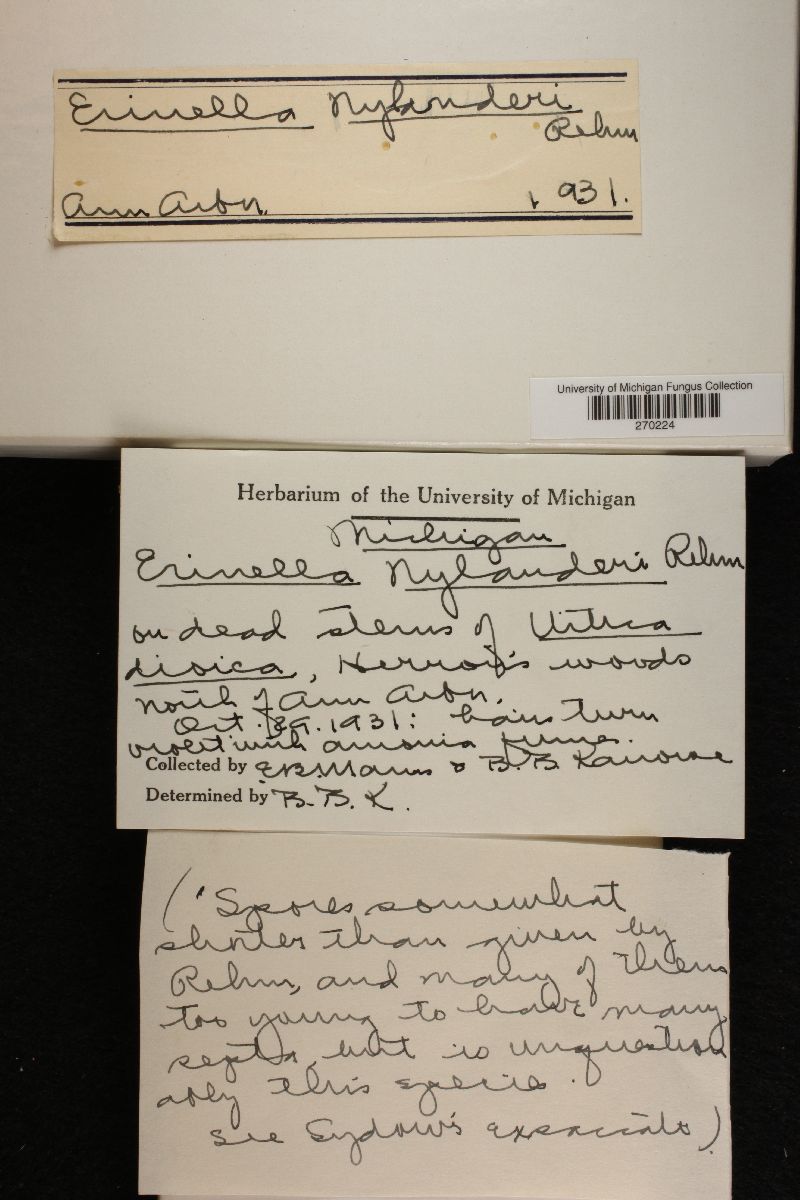 Erinella Nylanderi
Rehm
Ann Arbor. 1931.
University of Michigan Fungus Collection
270224
Herbarium of the University of Michigan
Michigan
Erinella Nylanderi Rehm
on dead stems of Urtica
dioica, woods
north of Ann Arbor.
Oct. 1931: hairs turn
violet with amonia fumes.
Collected by E.B. Mains & B.B. Kanouse
Determined by B.B.K.
(Spores somewhat
shorter than given by
Rehm, and many of them
too young to have many
septa, but is unquestion
ably this species.
See Sydow's exsiccati)